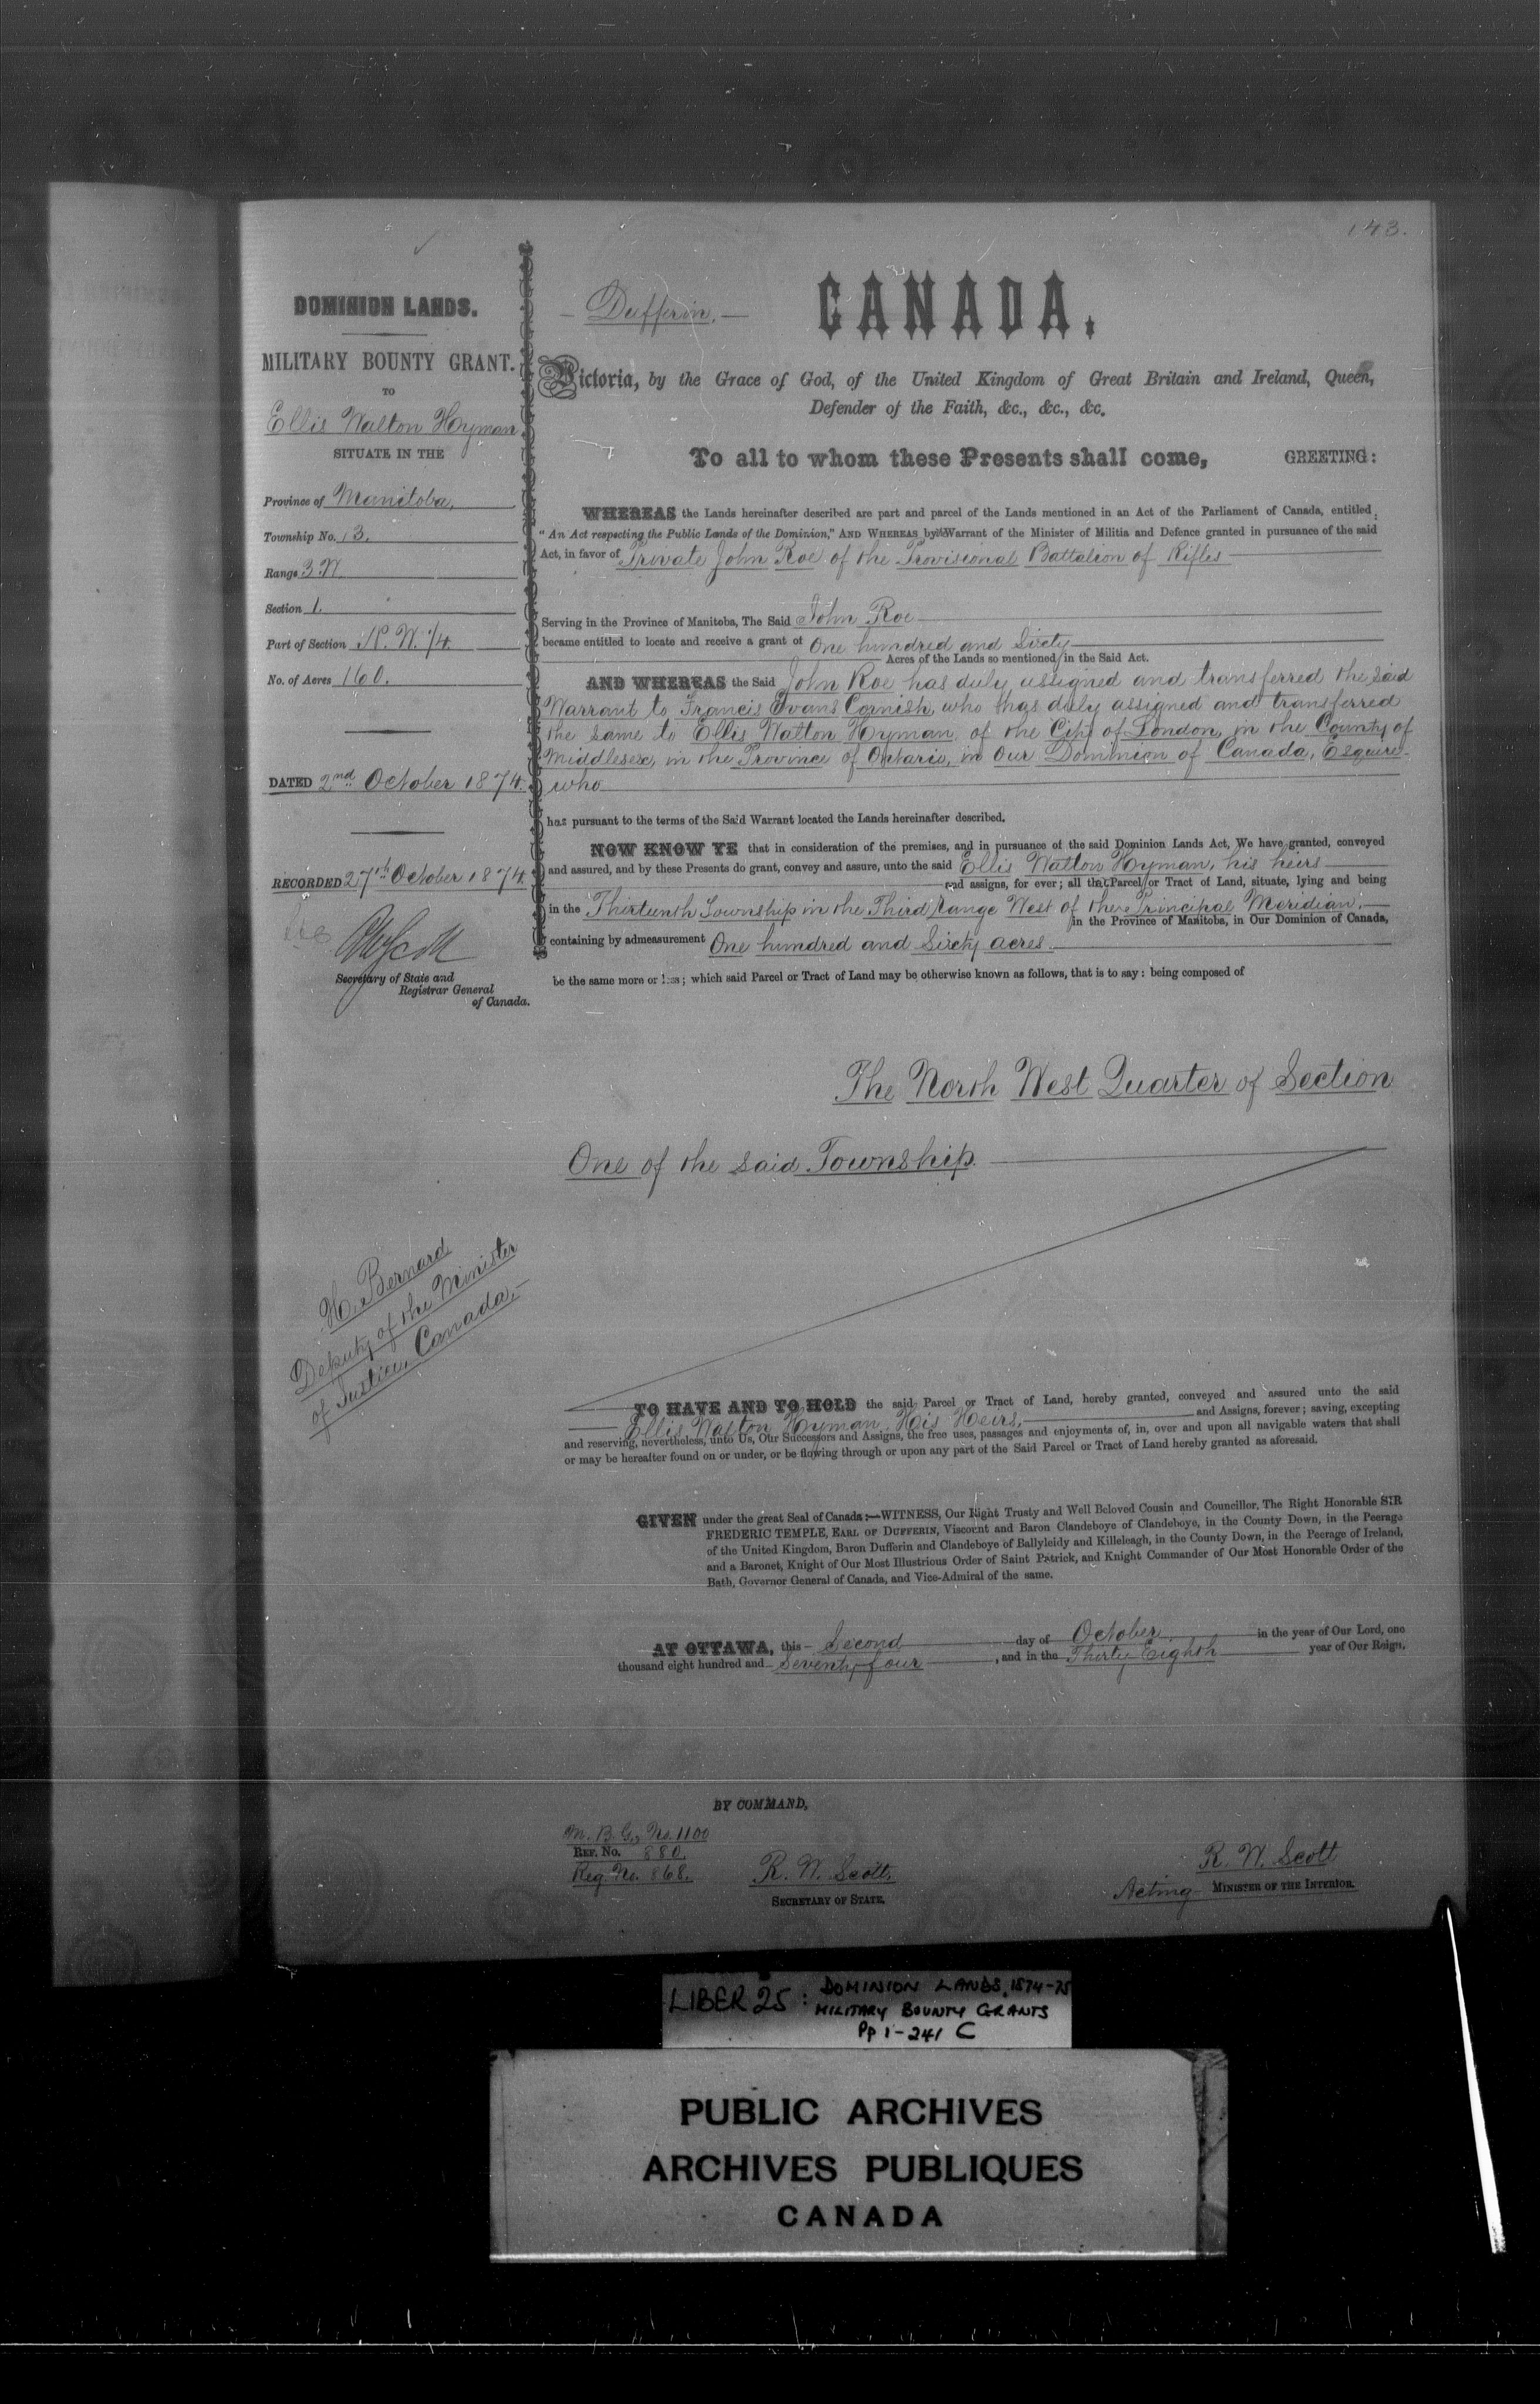 143.
DOMINION LANDS.
MILITARY BOUNTY GRANT.
TO
Ellis Walton Hyman
SITUATE IN THE
Province of Manitoba,
Township No. 13.
Range 3 W
Section 1.
Part of Section N. W. 1/4
No. of Acres 160.
DATED 2nd October 1874.
RECORDED 27th October 1874
Secretary of State and
Registrar General
of Canada.
H. Bernard
Deputy of the Minister
of Justice, Canada.
Dufferin.
CANADA.
Victoria, by the Grace of God, of the United Kingdom of Great Britain and Ireland, Queen,
Defender of the Faith, &c., &c., &c.
To all to whom these Presents shall come, GREETING:
WHEREAS the Lands hereinafter described are part and parcel of the Lands mentioned in an Act of the Parliament of Canada, entitled
"An Act respecting the Public Lands of the Dominion," AND WHEREAS by Warrant of the Minister of Militia and Defence granted in pursuance of the said
Act, in favor of Private John Roe of the Provisional Battalion of Rifles
Serving in the Province of Manitoba, The Said John Roe
became entitled to locate and receive a grant of One hundred and Sixty
Acres of the Lands so mentioned in the Said Act.
AND WHEREAS the Said John Roe has duly assigned and transferred the said
Warrant to Francis Evans Cornish, who has duly assigned and transferred
the same to Ellis Walton Hyman, of the City of London in the County of
Middlesex, in the Province of Ontario, in Our Dominion of Canada, Esquire
who
has pursuant to the terms of the Said Warrant located the Lands hereinafter described.
NOW KNOW YE that in consideration of the premises, and in pursuance of the said Dominion Lands Act, We have granted, conveyed
and assured, and by these Presents do grant, convey and assure, unto the said Ellis Walton Hyman, his heirs
and assigns, for ever; all that Parcel or Tract of Land, situate, lying and being
in the Thirteenth Township in the Third Range West of the Principal Meridian,
in the Province of Manitoba, in Our Dominion of Canada,
containing by admeasurement One hundred and Sixty acres
be the same more or less; which said Parcel or Tract of Land may be otherwise known as follows, that is to say: being composed of
The North West Quarter of Section
One of the said Township.
TO HAVE AND TO HOLD the said Parcel or Tract of Land, hereby granted, conveyed and assured unto the said
Ellis Walton Hyman, His Heirs, and Assigns, forever; saving, excepting
and reserving, nevertheless, unto Us, Our Successors and Assigns, the free uses, passages and enjoyments of, in, over and upon all navigable waters that shall
or may be hereafter found on or under, or be flowing through or upon any part of the Said Parcel or Tract of Land hereby granted as aforesaid.
GIVEN under the great Seal of Canada:—WITNESS, Our Right Trusty and Well Beloved Cousin and Councillor, The Right Honorable SIR
FREDERIC TEMPLE, EARL OF DUFFERIN, Viscount and Baron Clandeboye of Clandeboye, in the County Down, in the Peerage
of the United Kingdom, Baron Dufferin and Clandeboye of Ballyleidy and Killeleagh, in the County Down, in the Peerage of Ireland,
and a Baronet, Knight of Our Most Illustrious Order of Saint Patrick, and Knight Commander of Our Most Honorable Order of the
Bath, Governor General of Canada, and Vice-Admiral of the same.
AT OTTAWA, this Second day of October in the year of Our Lord, one
thousand eight hundred and Seventy four, and in the Thirty Eighth year of Our Reign.
BY COMMAND,
M. B. G. No. 1100
REF. No. 880.
Reg. No. 868.
R. W. Scott,
SECRETARY OF STATE.
R. W. Scott
Acting MINISTER OF THE INTERIOR.
LIBER 25: DOMINION LANDS, 1874-75
MILITARY BOUNTY GRANTS
Pp 1-241 C
PUBLIC ARCHIVES
ARCHIVES PUBLIQUES
CANADA